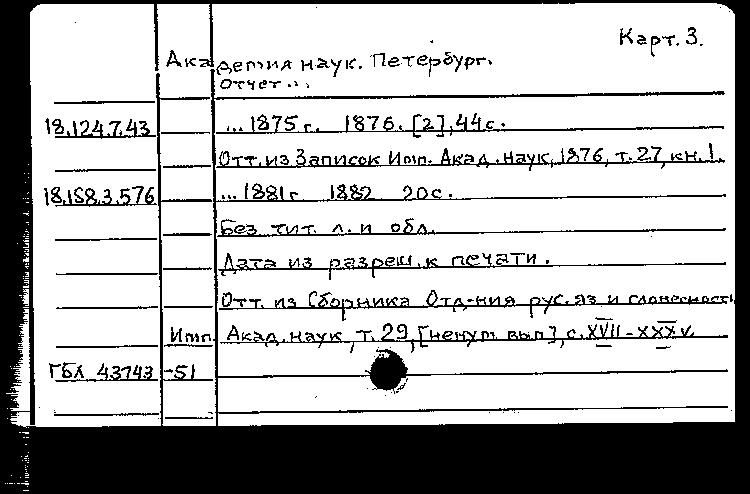 Карт. 3.
Академия наук. Петербург.
Отчет...
18.124.7.43 ...1875 г. 1876. [2], 44 с.
Отт. из Записок Имп. Акад. наук, 1876, т. 27, кн. 1.
18.158.3.576 ...1881 г 1882 20 с.
Без тит. л. и обл.
Дата из разреш. к печати.
Отт. из Сборника Отд-ния рус. яз и словесности
Имп. Акад. наук, т. 29, [ненум вып], с. XVII-XXXV.
ГБЛ 43743-51